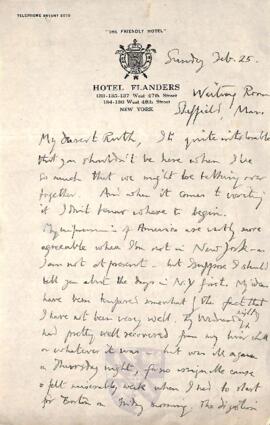 TELEPHONE BRYANT 8570
"THE FRIENDLY HOTEL"
Sunday Feb. 25.
HOTEL FLANDERS
133-135-137 West 47th Street
134-136 West 48th Street
NEW YORK
Writing Room
Sheffield, Mass.
My dearest Ruth, It's quite intolerable
that you shouldn't be here when I like
so much that we might be talking over
together. And when it comes to writing
it I don't know where to begin.
My impressions of America are vastly more
agreeable when I'm not in New York - as I
am not at present - but suppose I should
tell you about the days in N.Y. first. My
have been tempered somewhat by the fact that
I have not been very well. By Wednesday night I
had pretty well recovered from my
or whatever it was - but was ill again
on Thursday night, for no assignable cause
& felt miserably weak when I had to start
for Boston on Friday morning. The digestion